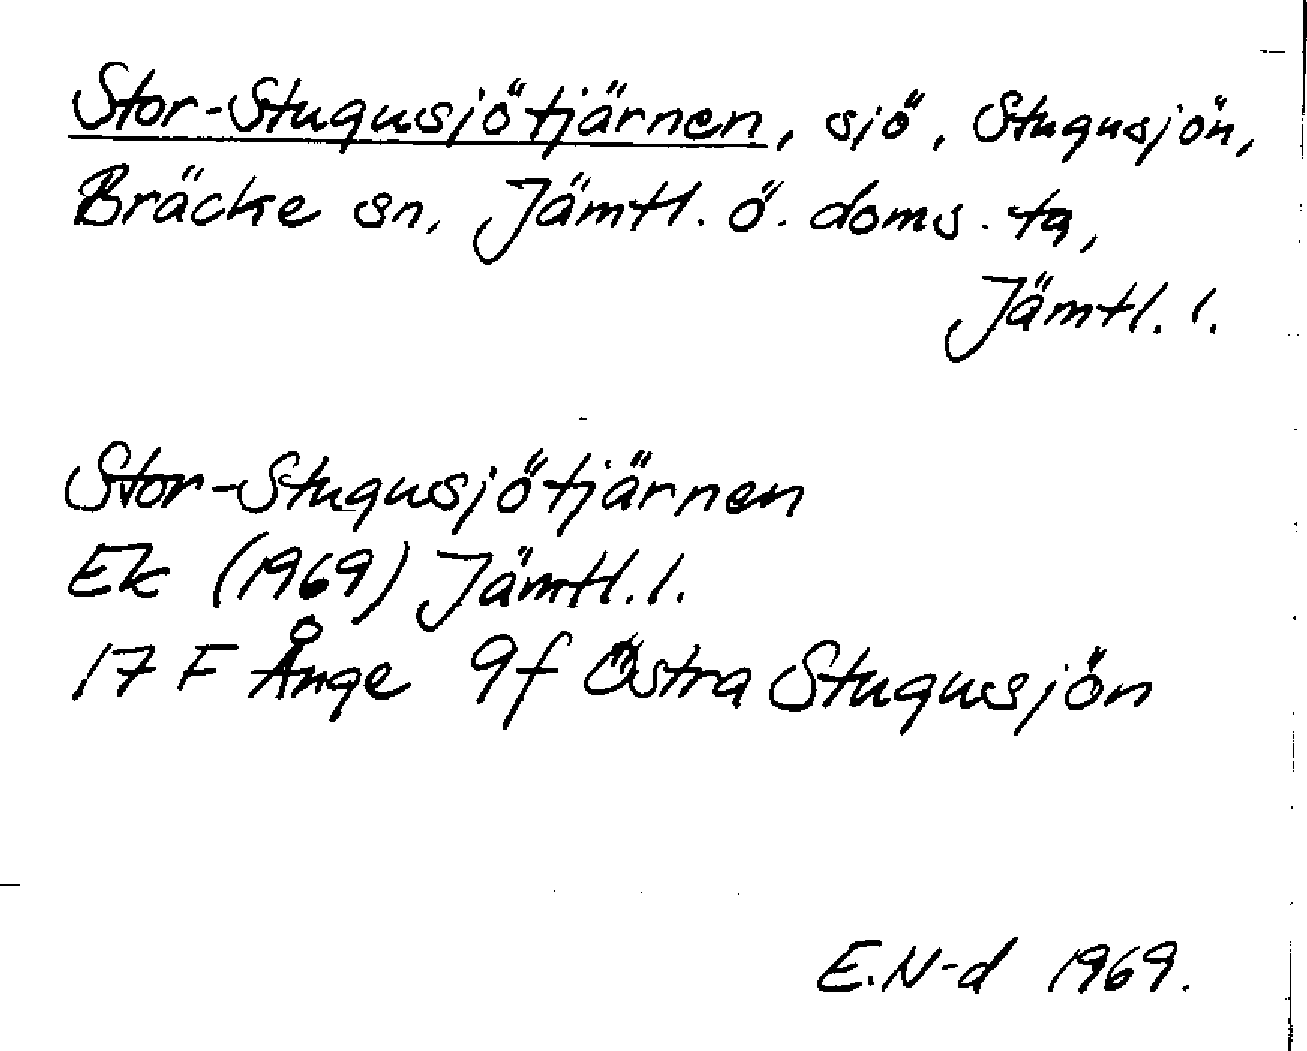 Stor-Stugusjötjärnen, sjö, Stugusjön,
Bräcke sn, Jämtl. ö. doms. tg,
Jämtl. l.
Stor-Stugusjötjärnen
Ek (1969) Jämtl. l.
17 F Ånge 9f Östra Stugusjön
E.N-d 1969.